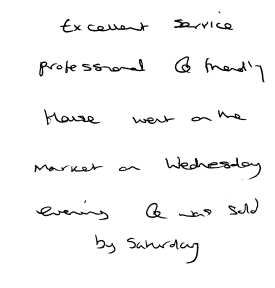 Excellent service
professional & friendly
House went on the
market on Wednesday
evening & was sold
by Saturday